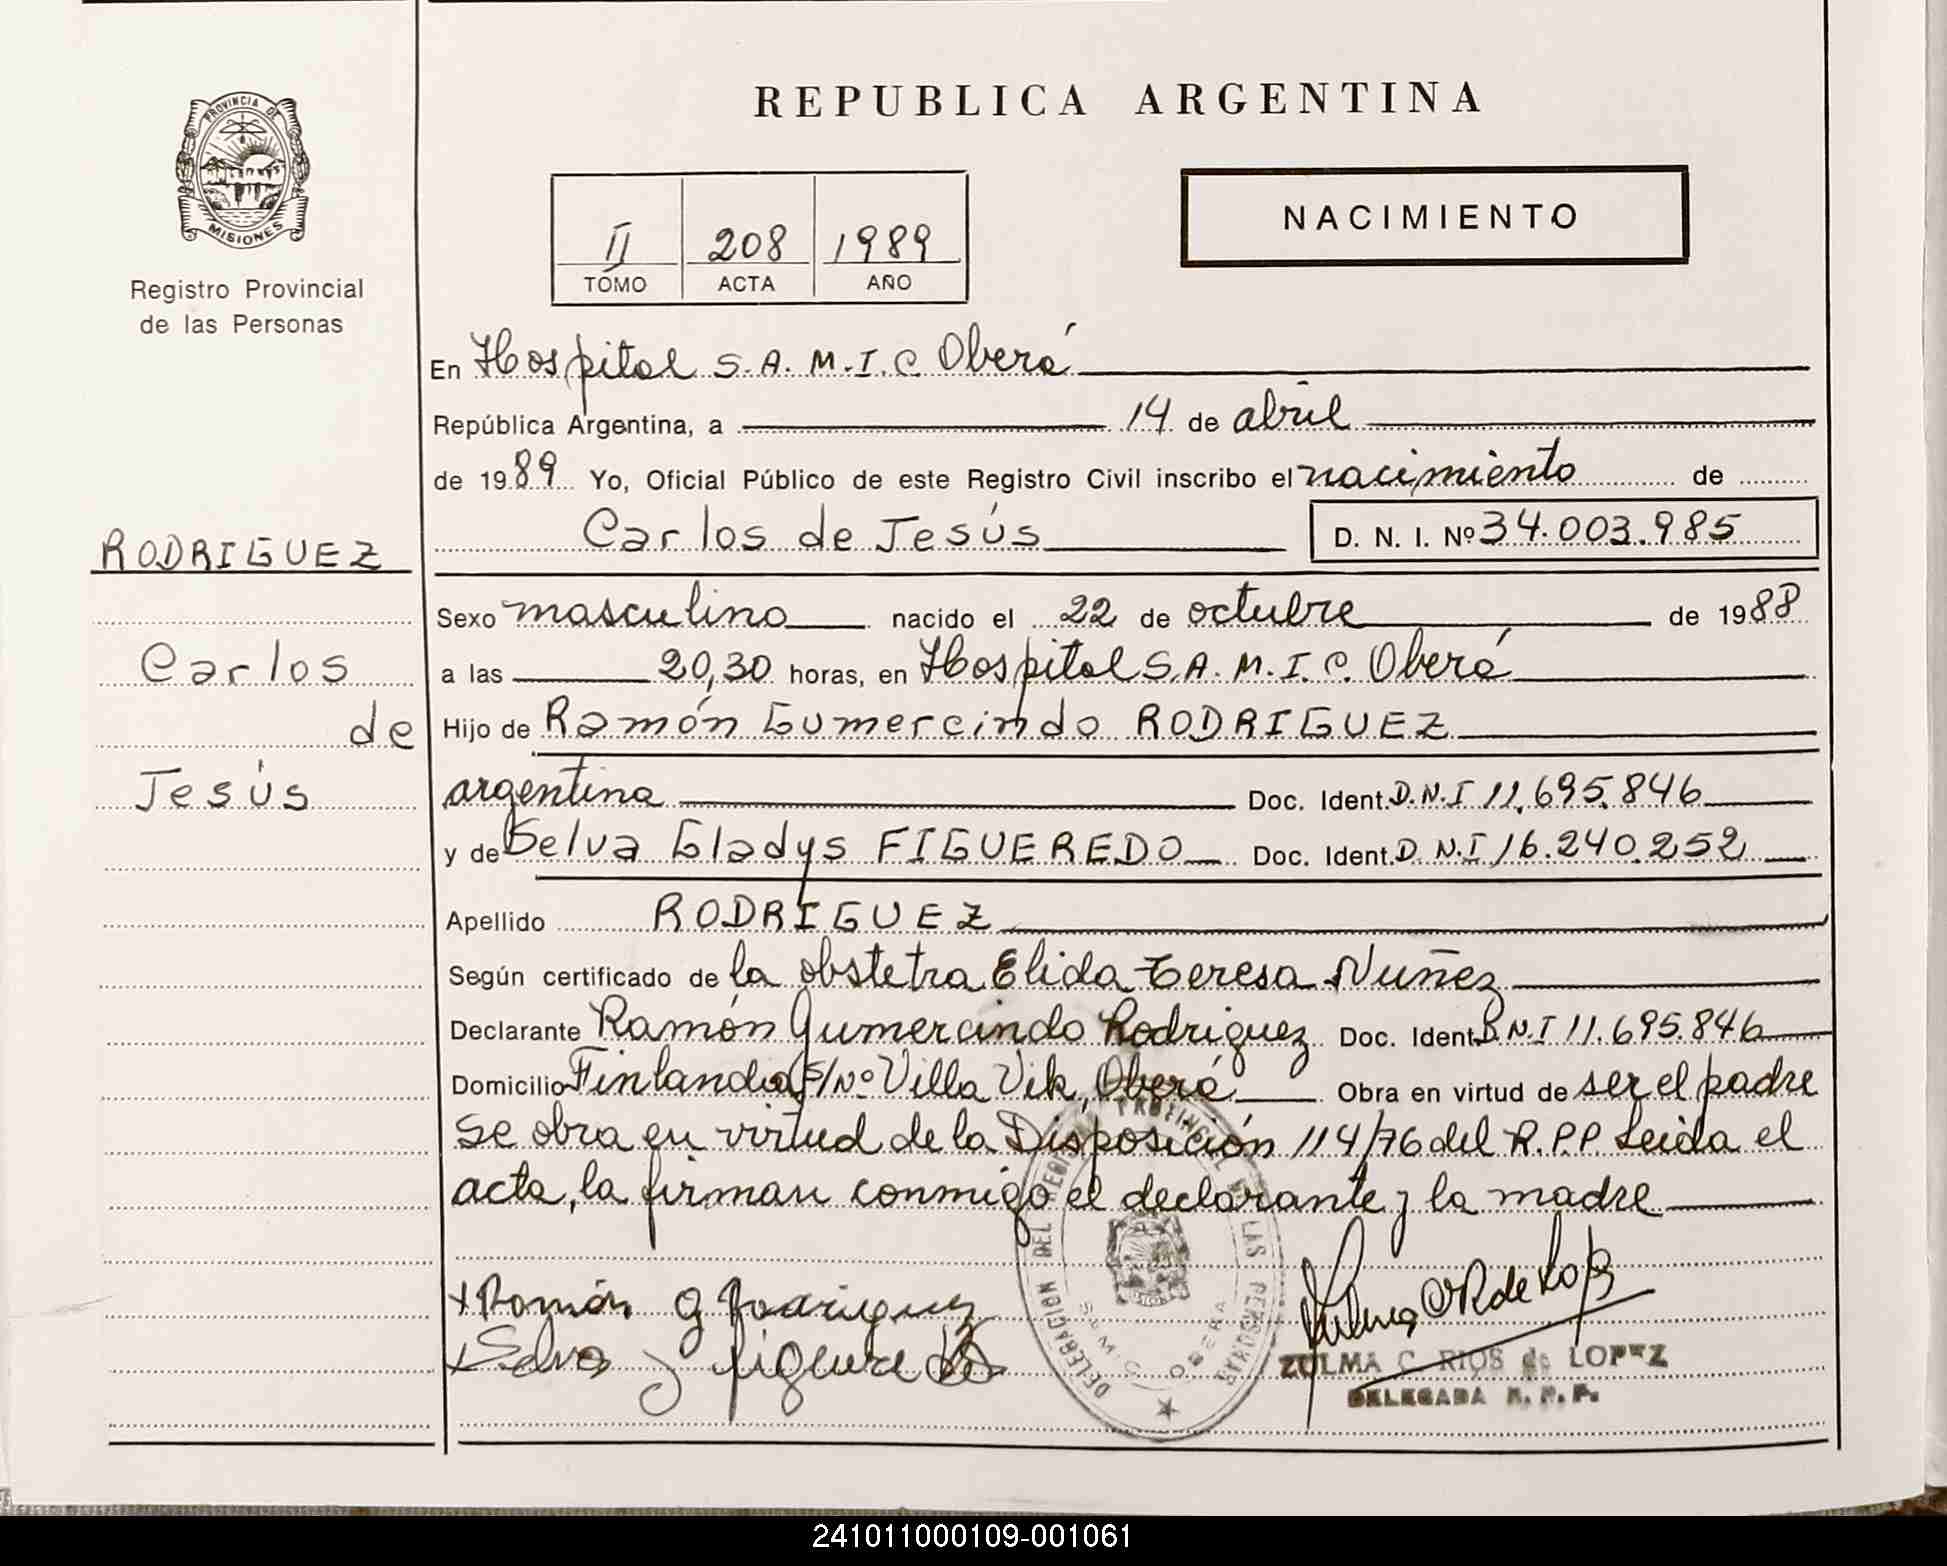 REPUBLICA ARGENTINA
PROVINCIA DE
MISIONES
Registro Provincial
de las Personas
II 208 1989
TOMO ACTA AÑO
NACIMIENTO
En Hospital S.A.M.I.C. Oberá
República Argentina, a 14 de abril
de 1989 Yo, Oficial Público de este Registro Civil inscribo el nacimiento de
Carlos de Jesús D. N. I. Nº 34.003.985
RODRIGUEZ
Carlos
de
Jesús
Sexo masculino nacido el 22 de octubre de 1988
a las 20,30 horas, en Hospital S.A.M.I.C. Oberá
Hijo de Ramón Gumercindo RODRIGUEZ
argentina Doc. Ident. D.N.I 11.695.846
y de Selva Gladys FIGUEREDO Doc. Ident. D.N.I 16.240.252
Apellido RODRIGUEZ
Según certificado de la obstetra Elida Teresa Nuñez
Declarante Ramón Gumercindo Rodriguez Doc. Ident. D.N.I 11.695.846
Domicilio Finlandia S/Nº Villa Vik, Oberá Obra en virtud de ser el padre
Se obra en virtud de la Disposición 114/76 del R.P.P Leida el
acta, la firman conmigo el declarante y la madre
Ramón G Rodriguez
Selva G Figueredo
DELEGACION DEL REGISTRO PROVINCIAL DE LAS PERSONAS
S.A.M.I.C. OBERA
Zulma C R de Lopez
ZULMA C. RIOS de LOPEZ
DELEGADA R. P. P.
241011000109-001061